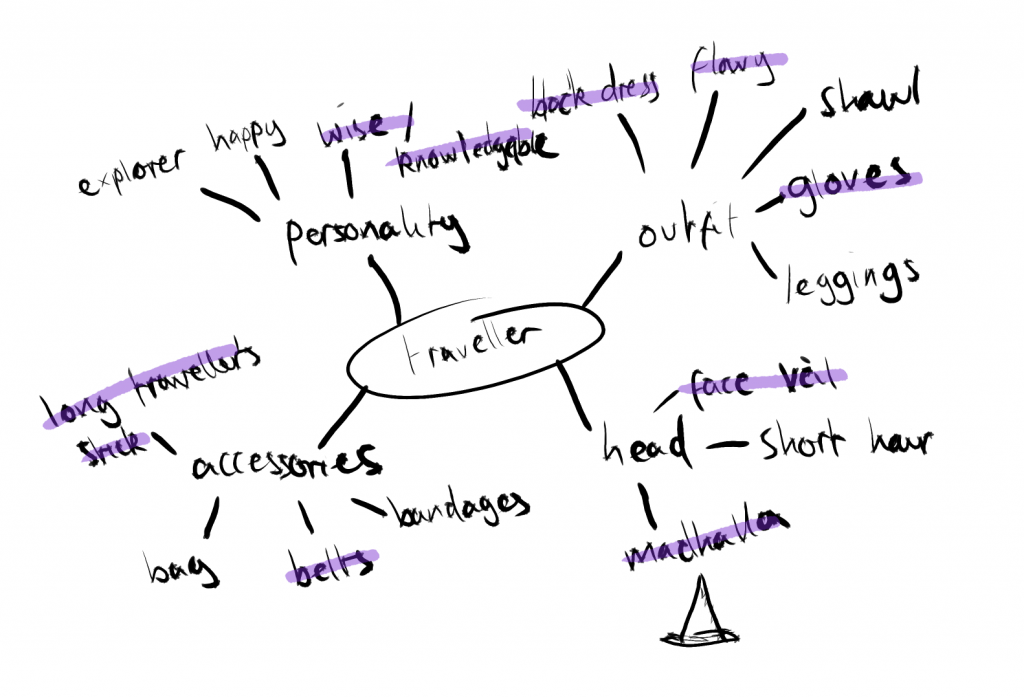 explorer
happy
wise /
knowledgable
back dress
flowy
shawl
gloves
leggings
personality
outfit
traveller
long travellers
stick
accessories
bag
belts
bandages
face veil
head
short hair
madhalla